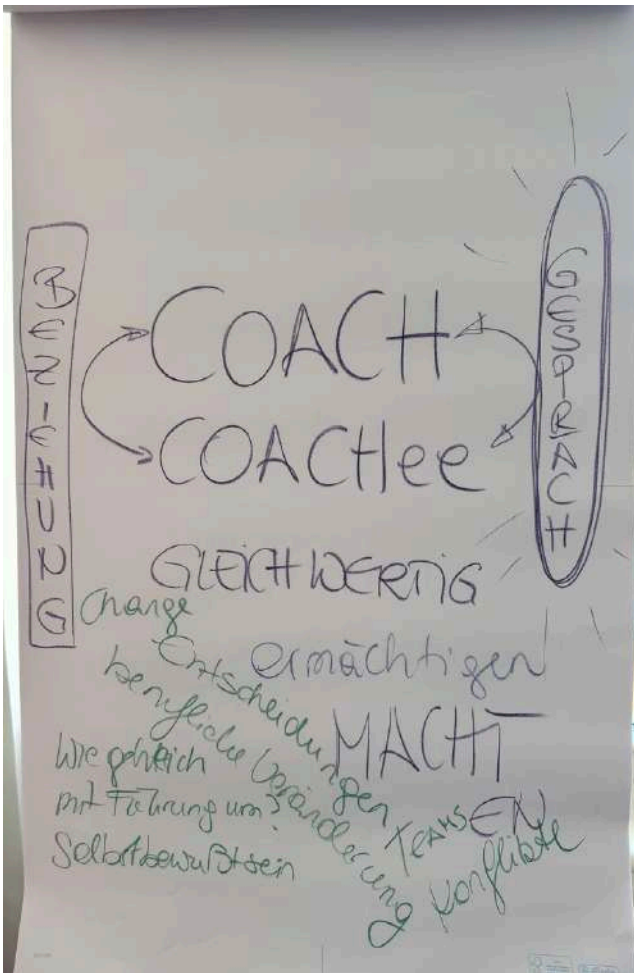 BEZIEHUNG
COACH
COACHee
GESPRÄCH
GLEICHWERTIG
ermächtigen
MACHT
EN
Change
Entscheidungen
berufliche Veränderung
Wie geh ich
mit Führung um?
Selbstbewußtsein
TEAMS
Konflikte